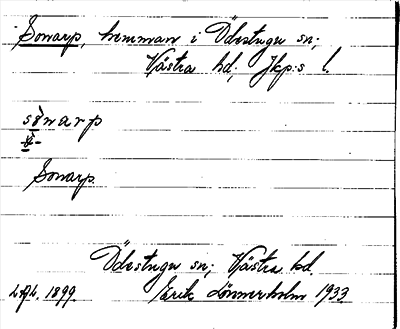 Sonarp, hemman i Ödestugu sn;
Västra hd; Jkp:s l.
sònarp
Sonarp.
Ödestugu sn; Västra hd.
1899. Erik Lönnerholm 1933